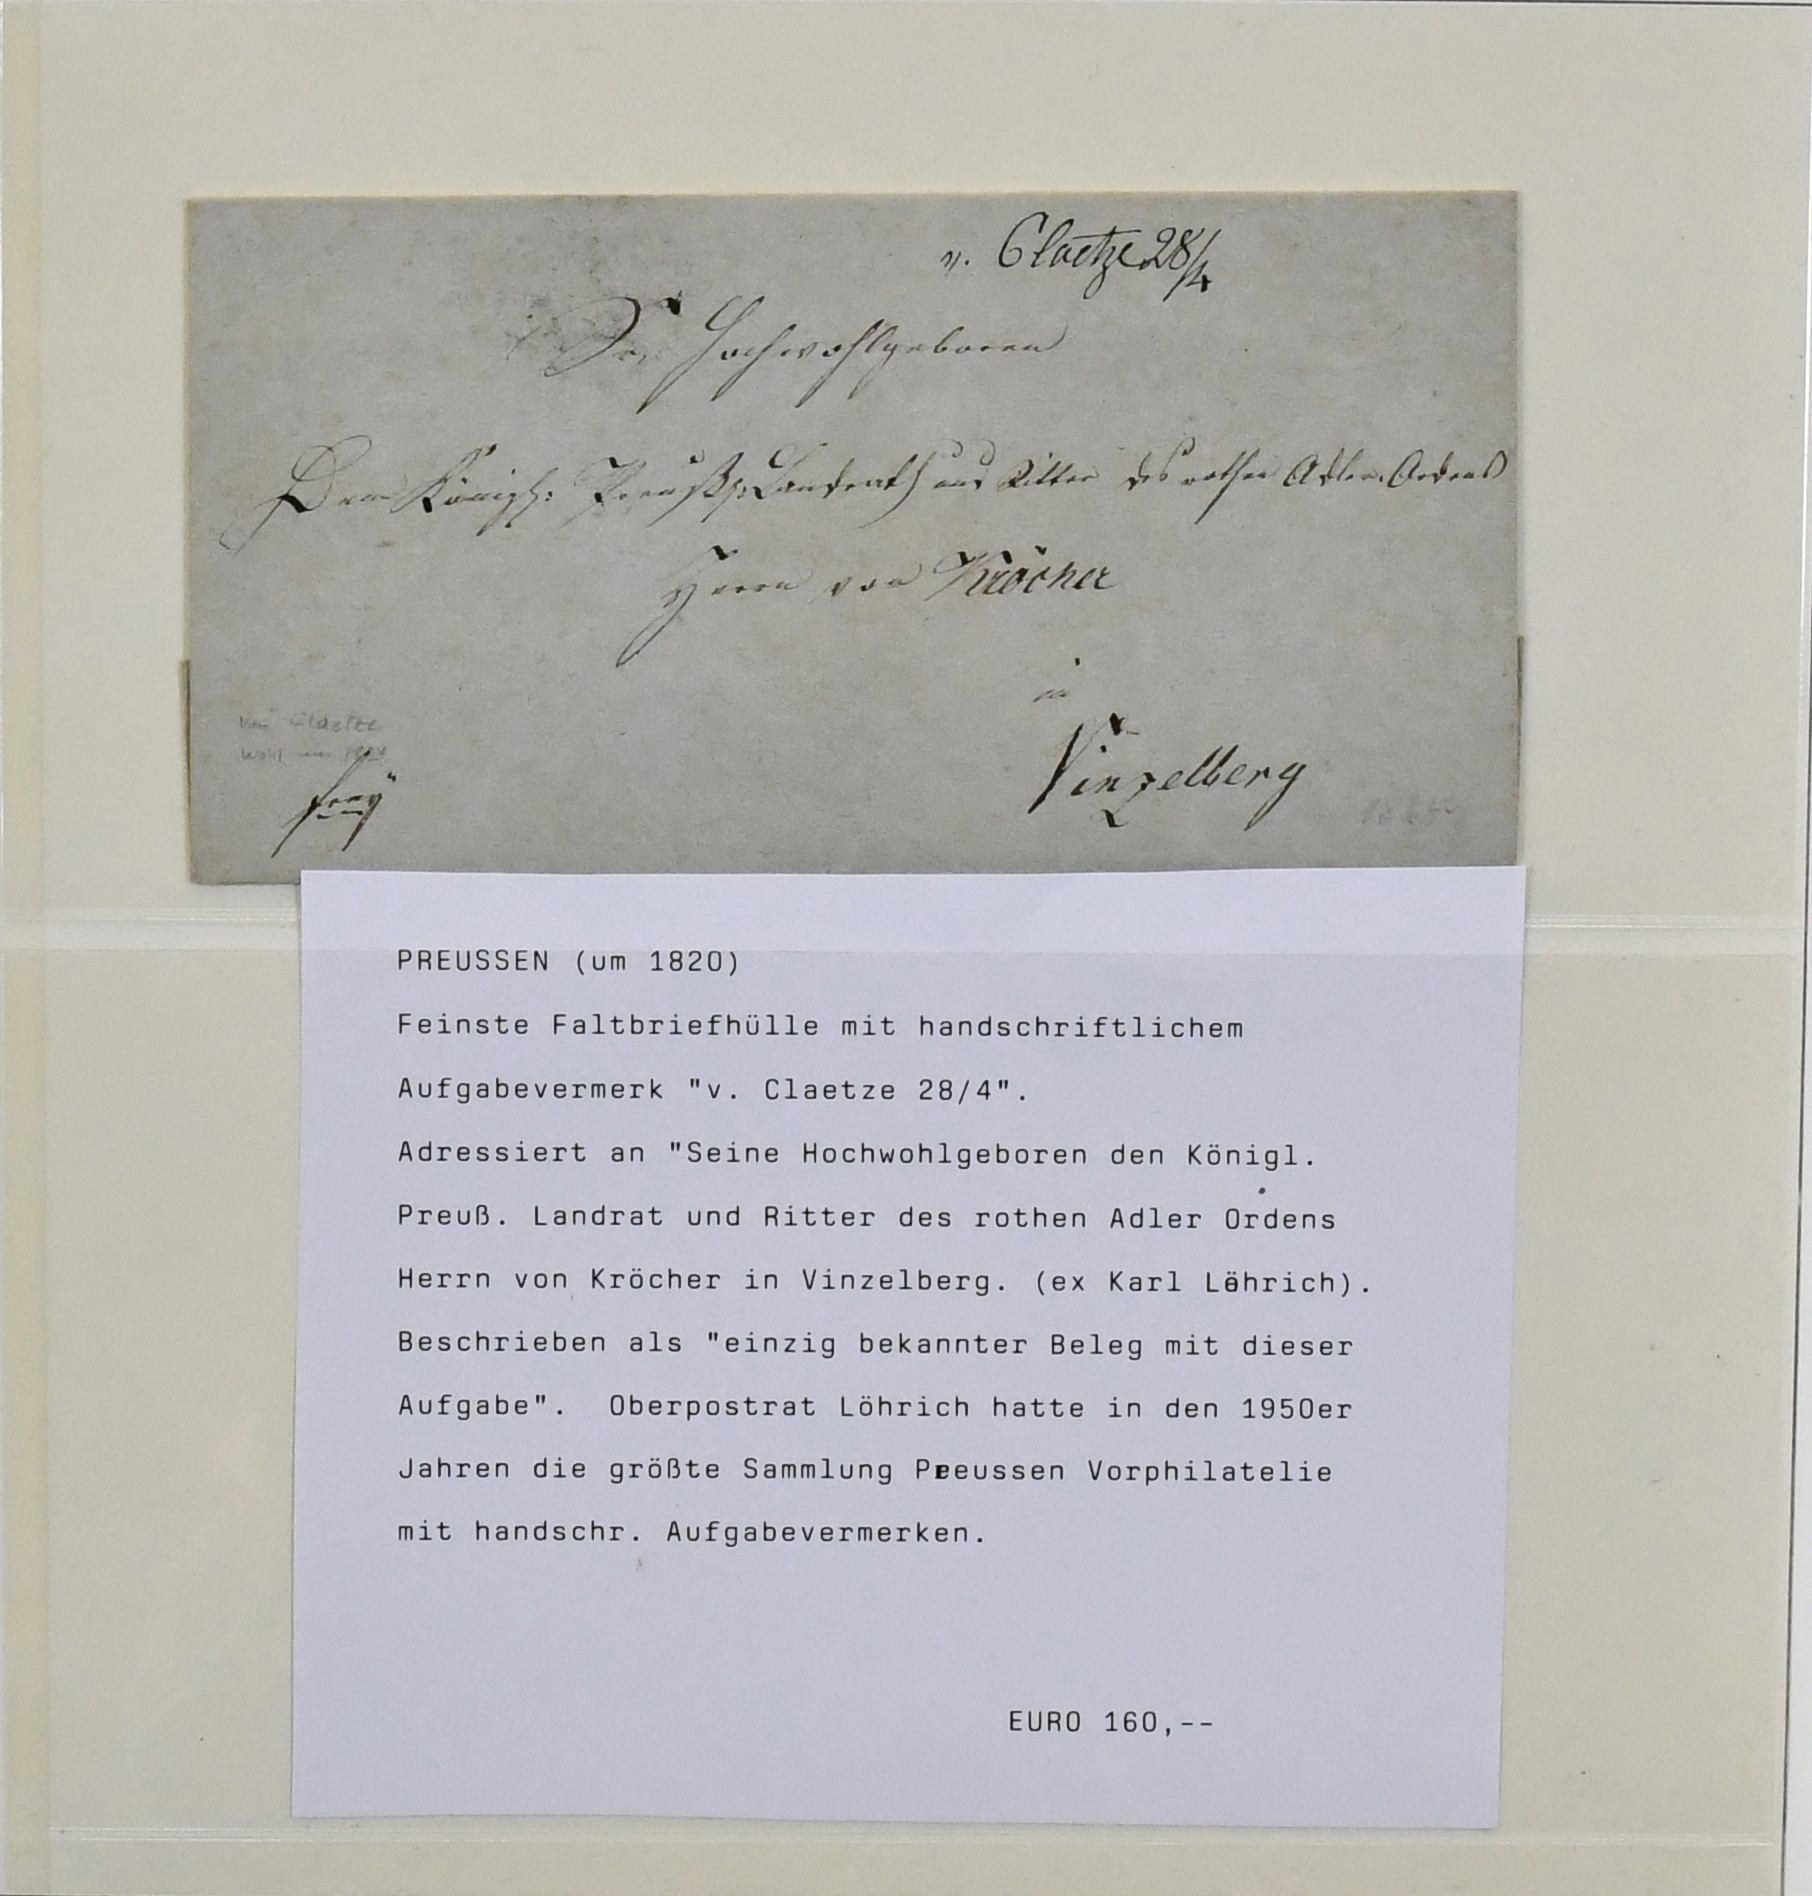 v. Claetze 28/4
Sr. Hochwohlgeboren
Dem Königl: Preußs: Landrath und Ritter des rothen Adler-Ordens
Herrn von Kröcher
in
Vinzelberg
Claetze
frey
PREUSSEN (um 1820)
Feinste Faltbriefhülle mit handschriftlichem
Aufgabevermerk "v. Claetze 28/4".
Adressiert an "Seine Hochwohlgeboren den Königl.
Preuß. Landrat und Ritter des rothen Adler Ordens
Herrn von Kröcher in Vinzelberg. (ex Karl Löhrich).
Beschrieben als "einzig bekannter Beleg mit dieser
Aufgabe".  Oberpostrat Löhrich hatte in den 1950er
Jahren die größte Sammlung Preussen Vorphilatelie
mit handschr. Aufgabevermerken.
EURO 160,--